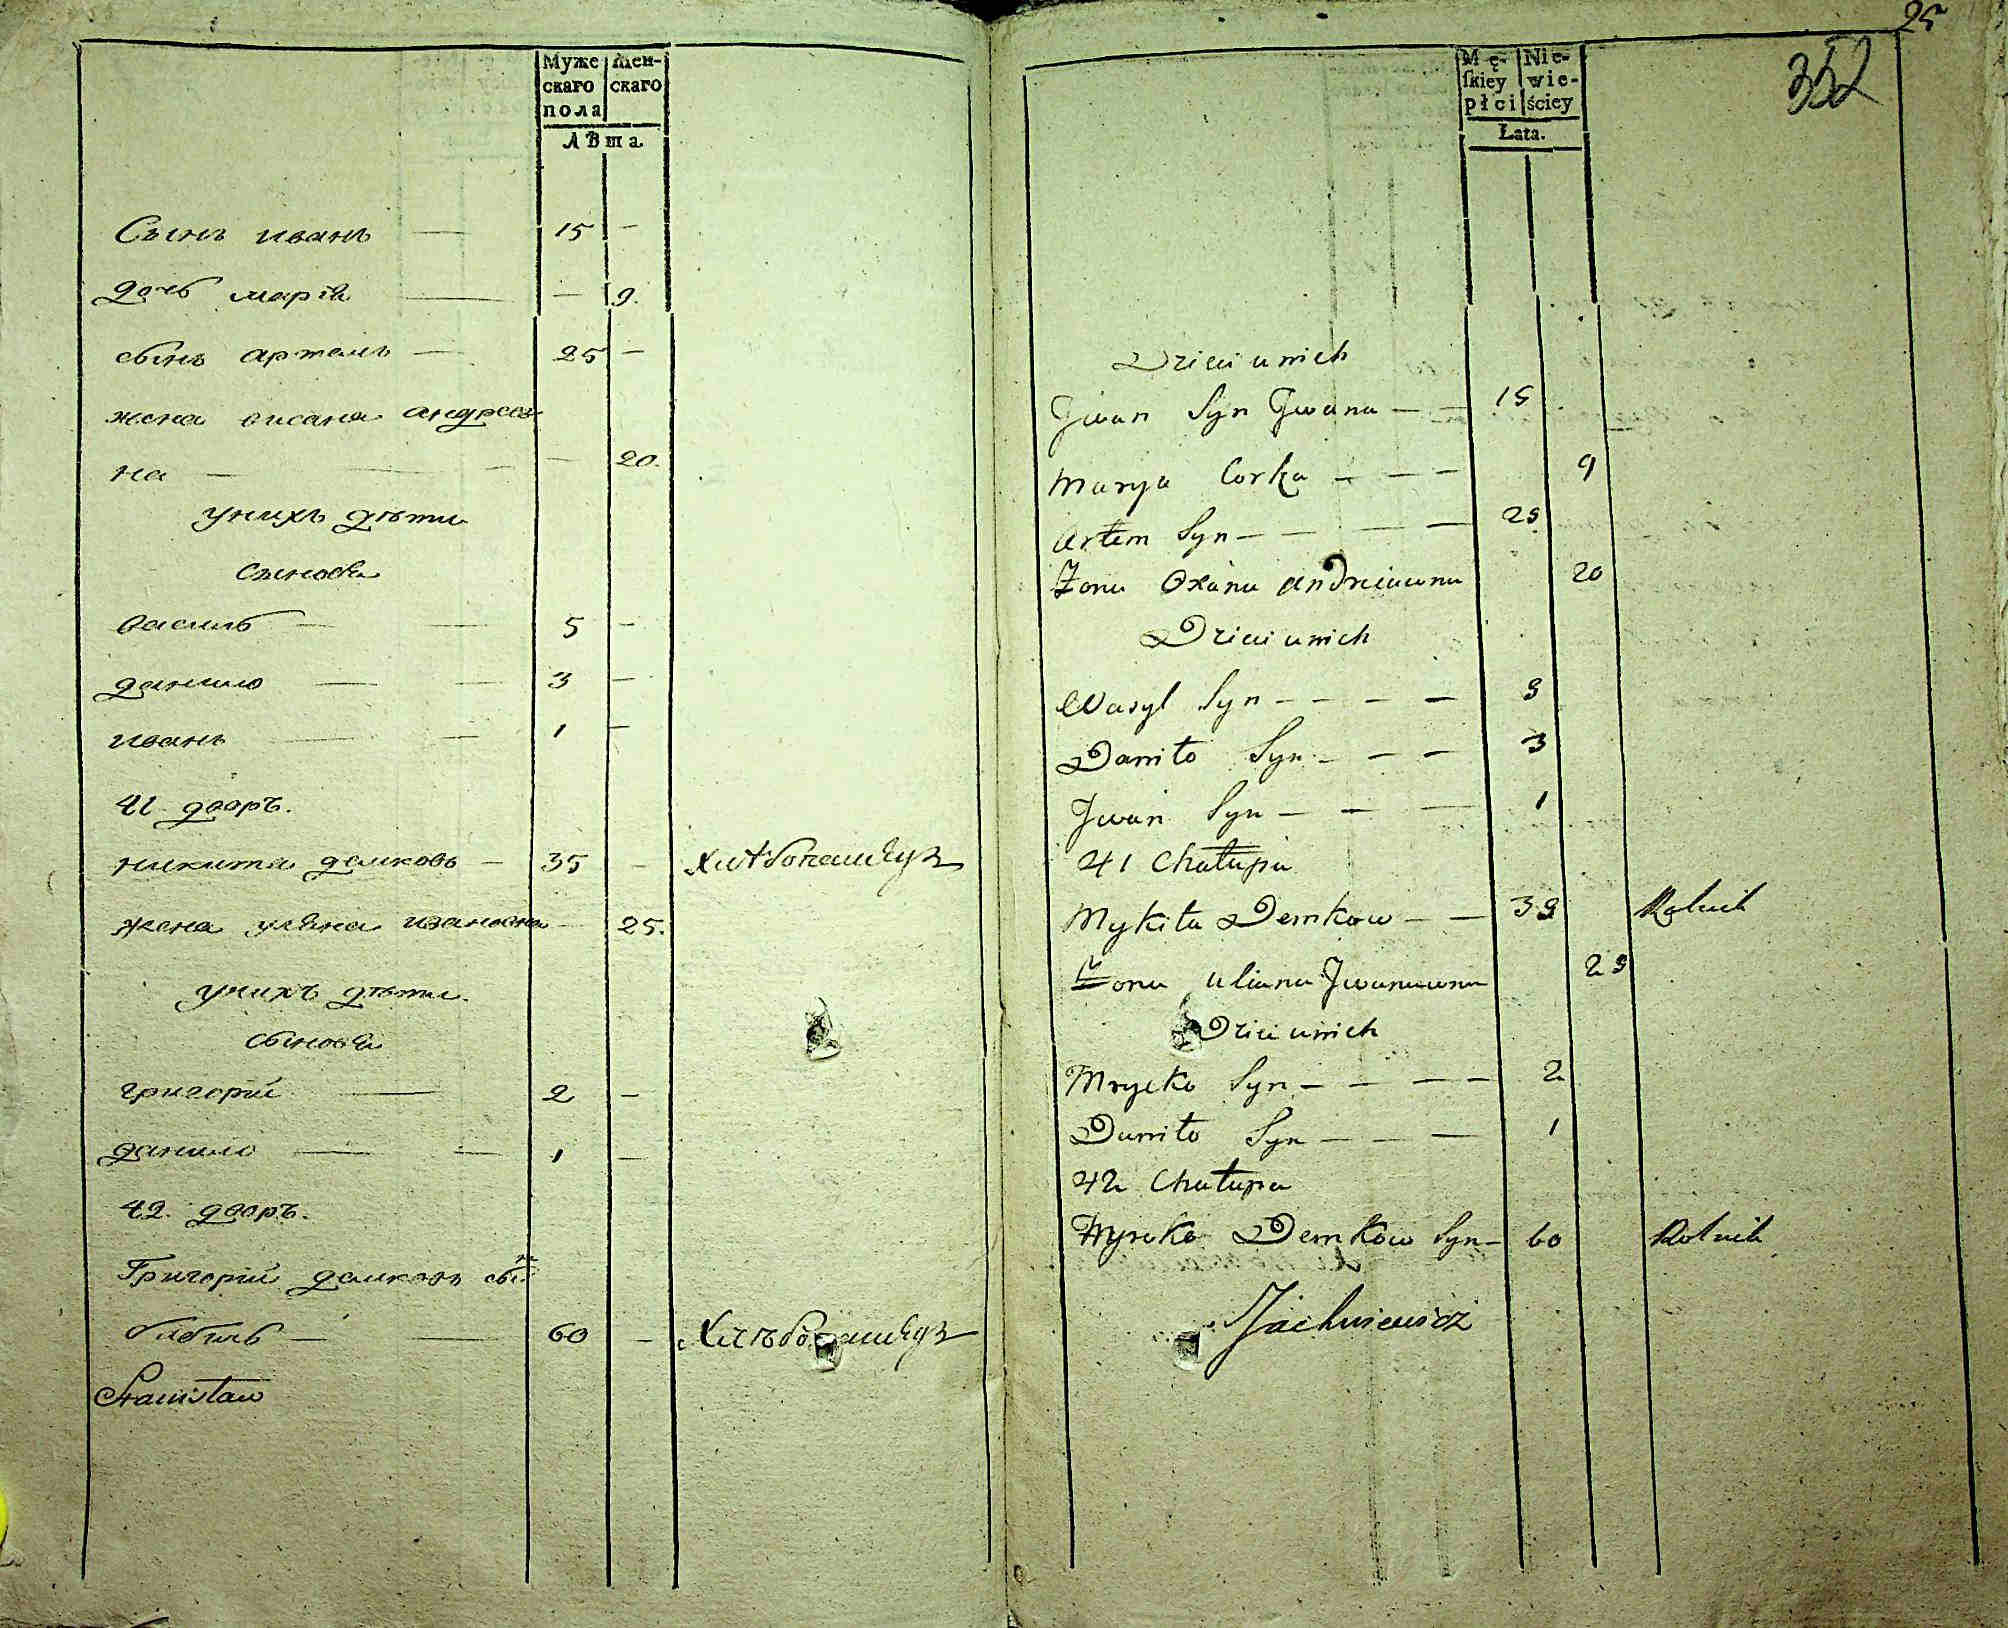 Муже Жен-
скаго скаго
пола
лѣта
Сынъ иванъ — 15 —
дочь марія — — 9.
сынъ артемъ — 25 —
жена оксана андреев
на — — 20.
унихъ дѣти
сыновя
василь — 5 —
данило — 3 —
иванъ — 1 —
41 дворъ.
никита демковъ — 35 — Хлѣбопашецъ
жена уляна иванов̃на — 25.
унихъ дѣти.
сыновя
григорій — 2 —
данило — 1 —
42. дворъ.
Григорій демковъ сынъ
60 — Хлѣбопашецъ
Stanisław
25
352
Mę- Nie-
ſkiey wie-
płci ściey
Łata.
Dzieci u nich
Jwan Syn Jwana — — 15
Marya Corka — — — 9
Artem Syn — — — 25
Żona Oxana Andreiewna 20
Dzieci u nich
Wasyl Syn — — — — 5
Daniło Syn — — — 3
Jwan Syn — — — 1
41 Chałupa
Mykita Demkow — — 35 Rolnik
Żona Uliana Jwanowna 25
Dzieci u nich
Syn — — — — 2
Daniło Syn — — — 1
42 Chałupa
Demkow Syn — 60 Rolnik
Jachniewicz